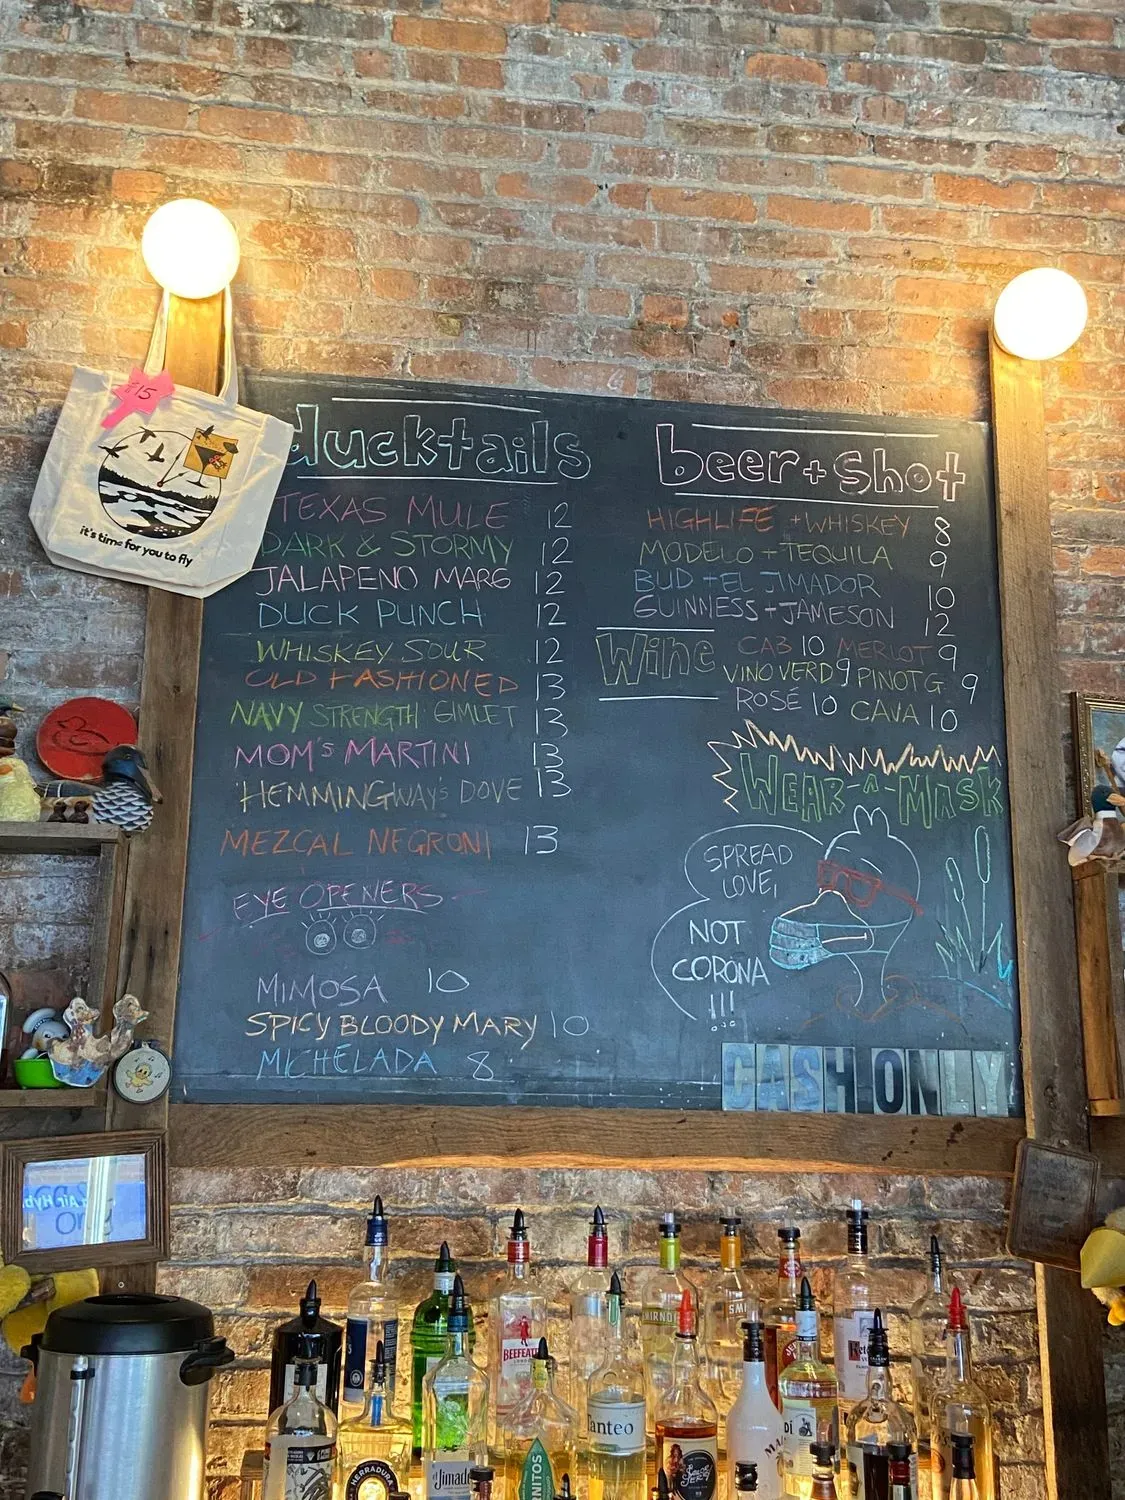 $15
it's time for you to fly
ducktails
TEXAS MULE 12
DARK & STORMY 12
JALAPENO MARG 12
DUCK PUNCH 12
WHISKEY SOUR 12
OLD FASHIONED 13
NAVY STRENGTH GIMLET 13
MOM'S MARTINI 13
HEMMINGWAY'S DOVE 13
MEZCAL NEGRONI 13
EYE OPENERS
MIMOSA 10
SPICY BLOODY MARY 10
MICHELADA 8
beer + shot
HIGHLIFE + WHISKEY 8
MODELO + TEQUILA 9
BUD + EL JIMADOR 10
GUINNESS + JAMESON 12
Wine
CAB 10 MERLOT 9
VINO VERD 9 PINOT G 9
ROSÉ 10 CAVA 10
WEAR-A-MASK
SPREAD
LOVE,
NOT
CORONA
!!!
CASH ONLY
BEEFEATER
LONDON
SMIRNOFF
SMI
Tanteo
HERRADURA
el Jimador